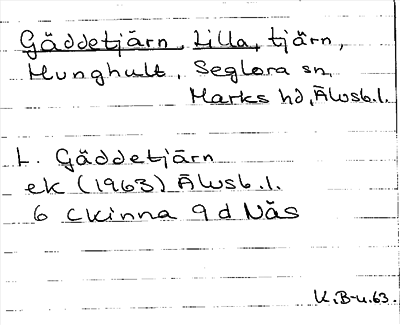 Gäddetjärn, Lilla, tjärn,
Munghult, Seglora sn,
Marks hd, Älvsb.l.
L. Gäddetjärn
ek (1963) Älvsb.l.
6 Ckinna 9d Näs
K.B-u.63.